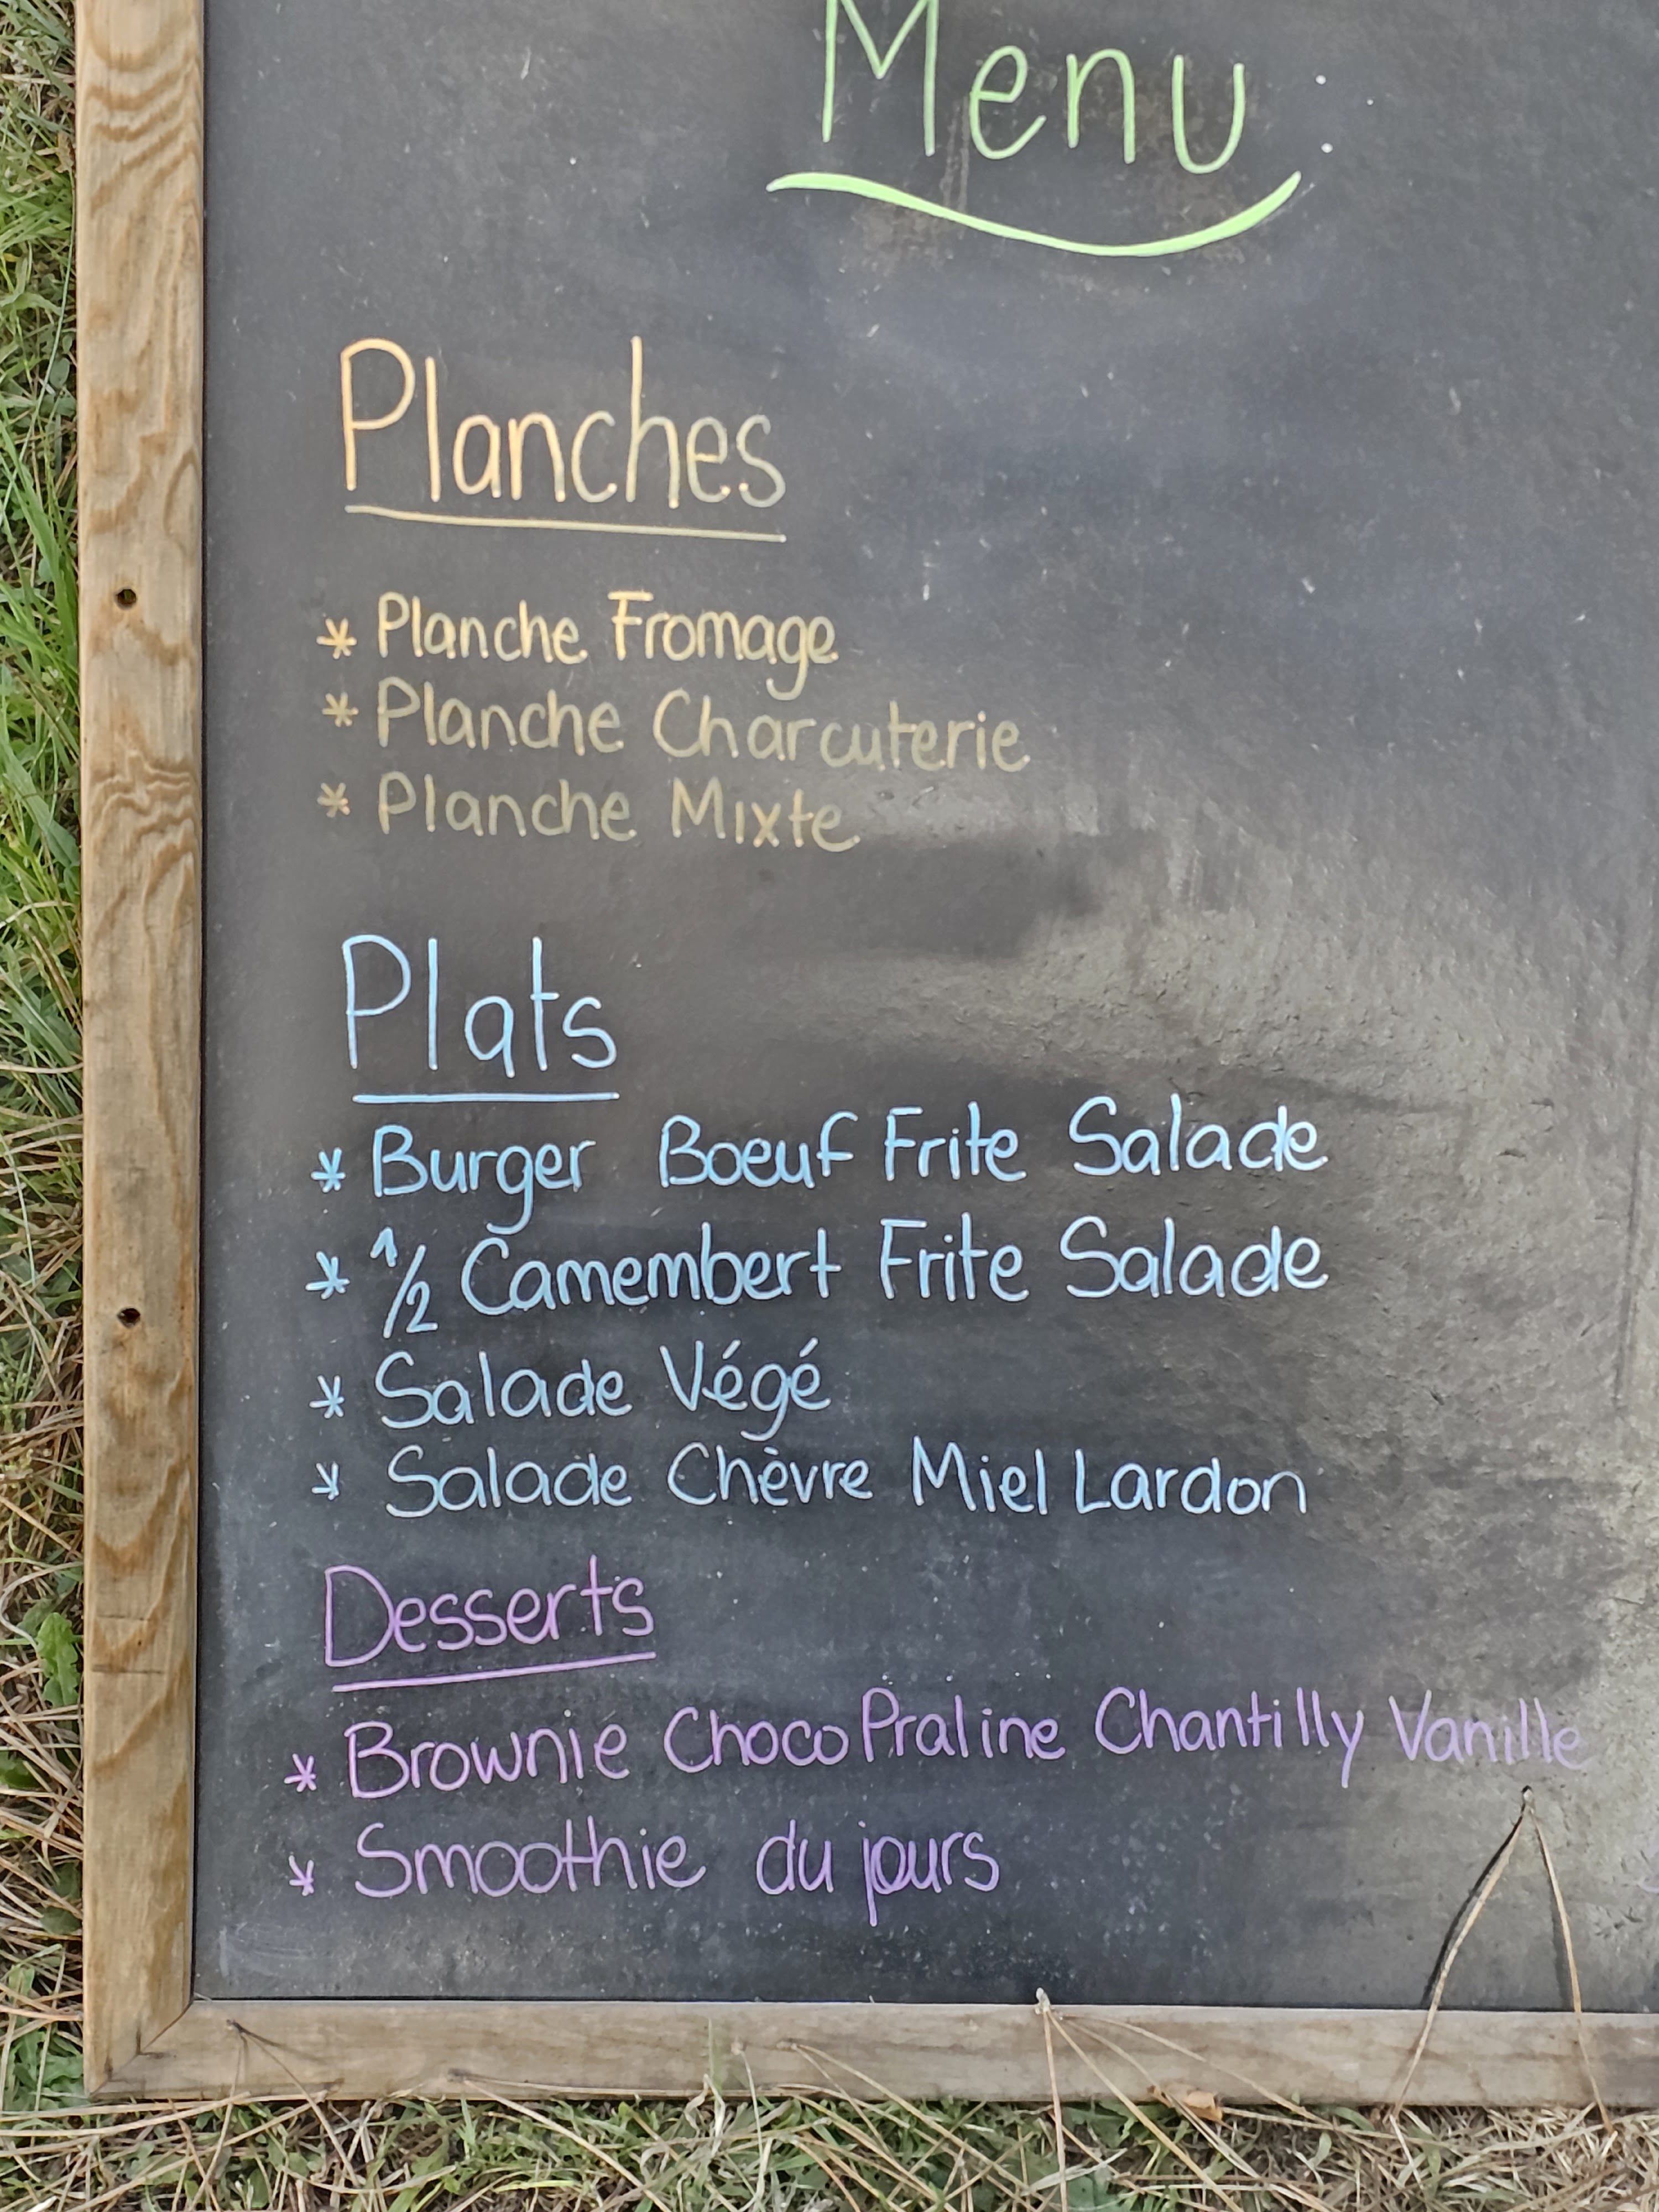 Menu
Planches
* Planche Fromage
* Planche Charcuterie
* Planche Mixte
Plats
* Burger Boeuf Frite Salade
* 1/2 Camembert Frite Salade
* Salade Végé
* Salade Chèvre Miel Lardon
Desserts
* Brownie Choco Praline Chantilly Vanille
* Smoothie du jours